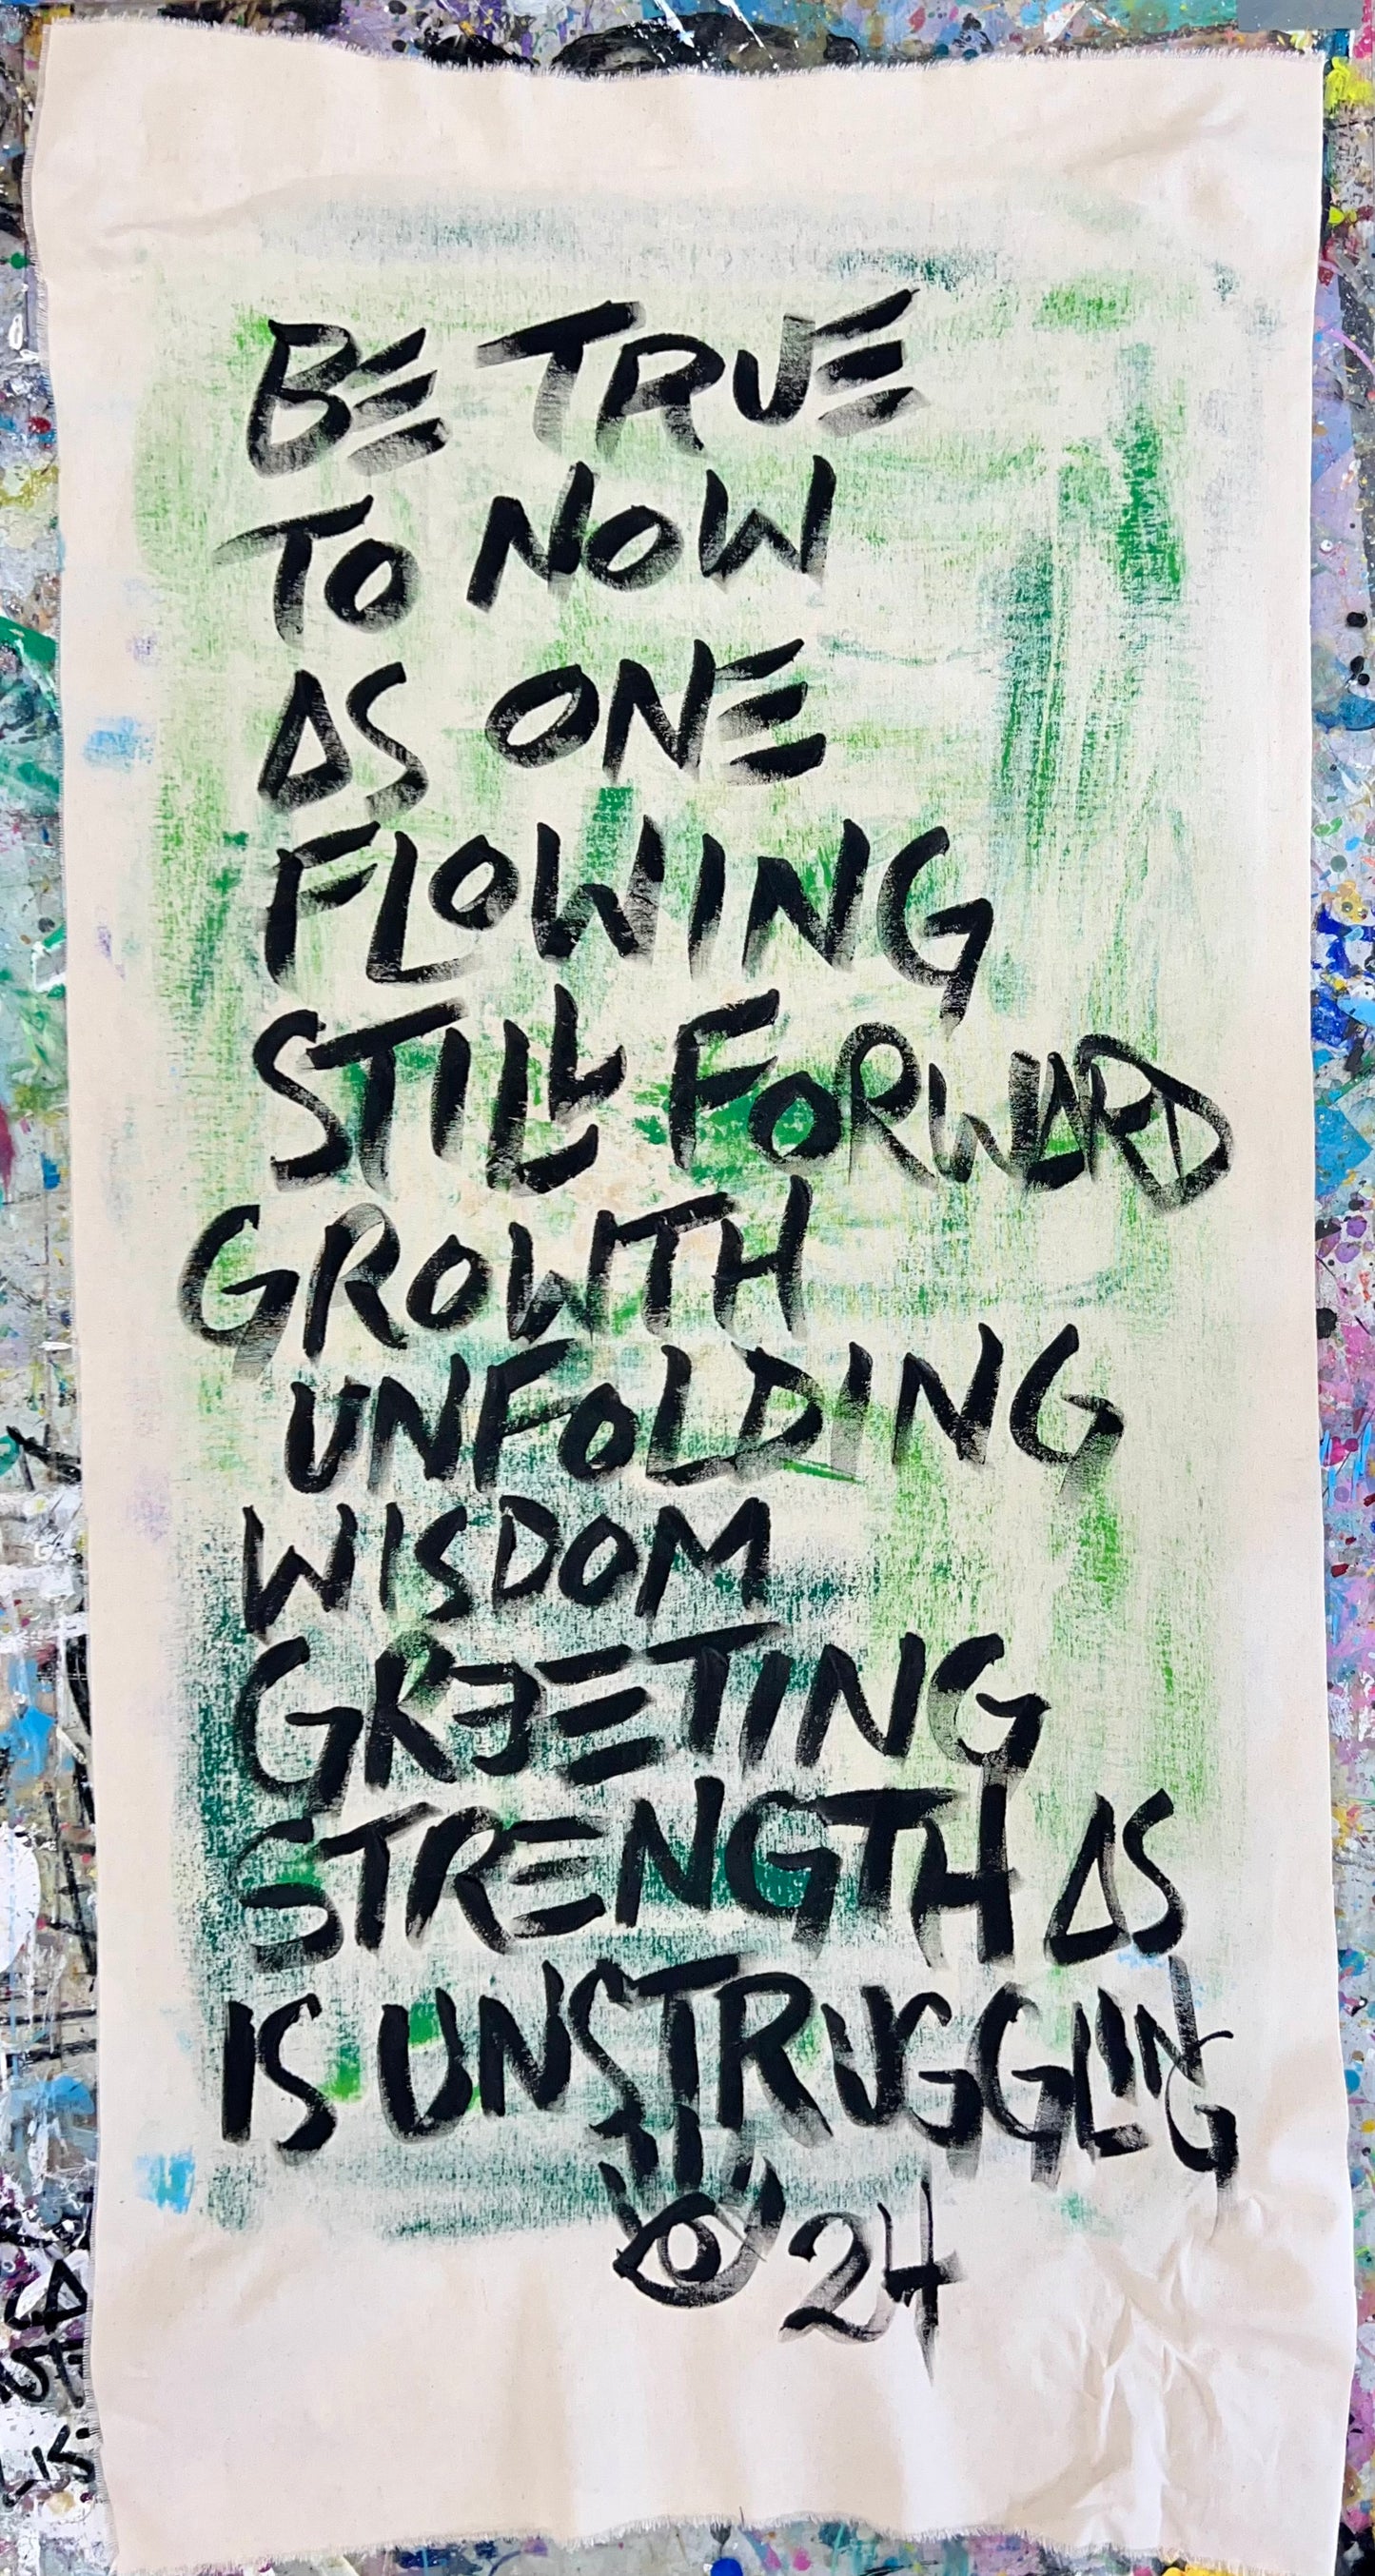 BE TRUE
TO NOW
AS ONE
FLOWING
STILL FORWARD
GROWTH
UNFOLDING
WISDOM
GREETING
STRENGTH AS
IS UNSTRUGGLING
24